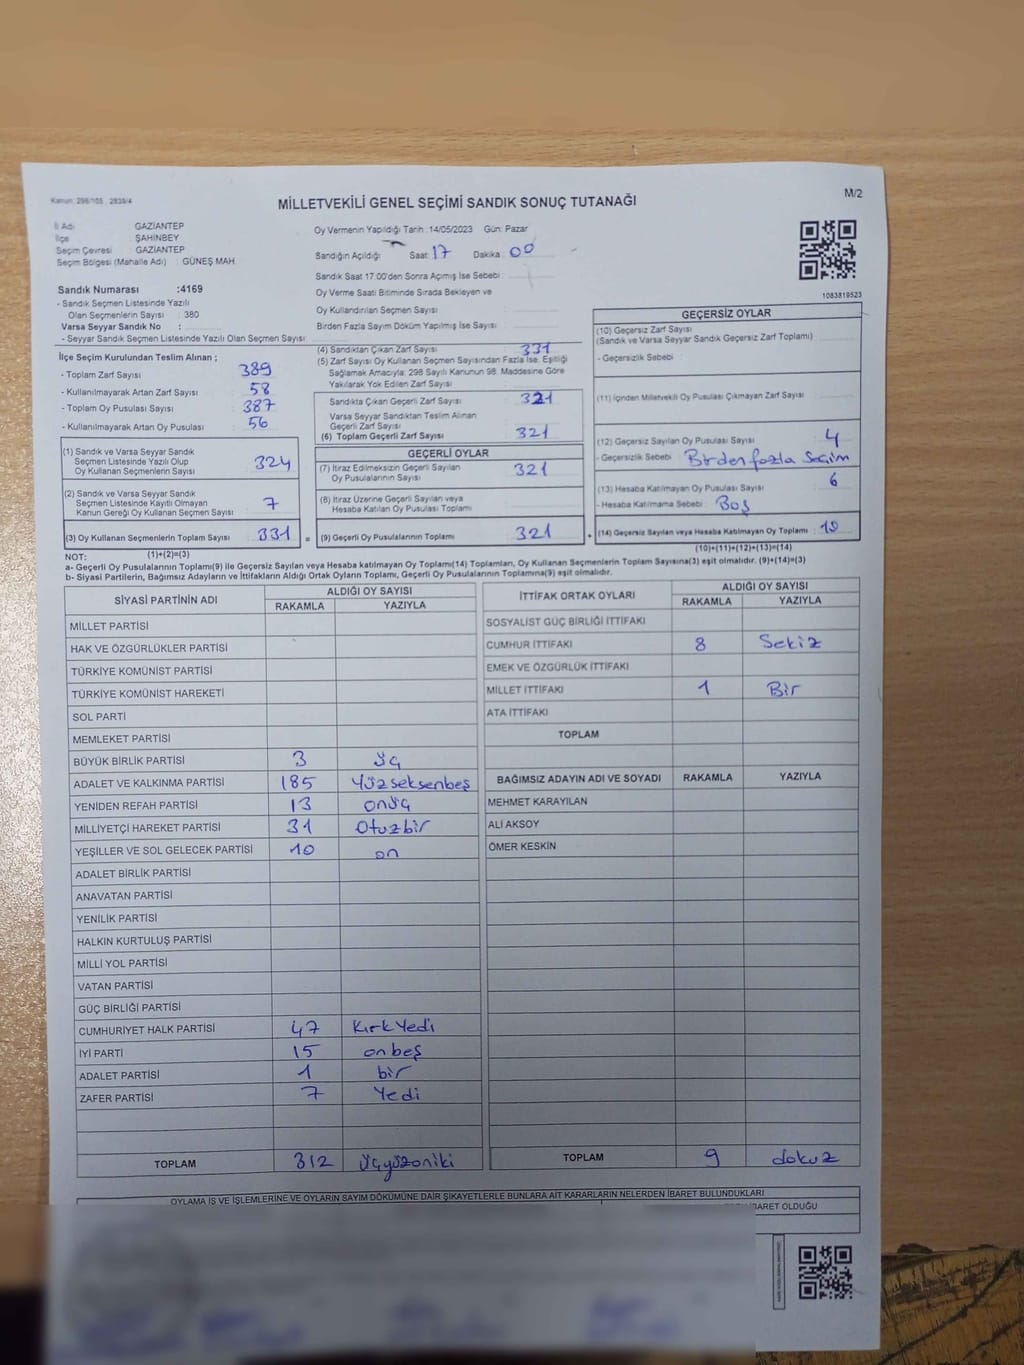 Kanun: 298/105 , 2839/4
M/2
MİLLETVEKİLİ GENEL SEÇİMİ SANDIK SONUÇ TUTANAĞI
İl Adı : GAZİANTEP
İlçe : ŞAHİNBEY
Seçim Çevresi : GAZİANTEP
Seçim Bölgesi (Mahalle Adı) : GÜNEŞ MAH.
Sandık Numarası :4169
- Sandık Seçmen Listesinde Yazılı
Olan Seçmenlerin Sayısı : 380
Varsa Seyyar Sandık No :
- Seyyar Sandık Seçmen Listesinde Yazılı Olan Seçmen Sayısı :
Oy Vermenin Yapıldığı Tarih :14/05/2023 Gün: Pazar
Sandığın Açıldığı Saat: 17 Dakika 00
Sandık Saat 17:00'den Sonra Açımış İse Sebebi :
Oy Verme Saati Bitiminde Sırada Bekleyen ve
Oy Kullandırılan Seçmen Sayısı :
Birden Fazla Sayım Döküm Yapılmış İse Sayısı :
1083819523
İlçe Seçim Kurulundan Teslim Alınan ;
- Toplam Zarf Sayısı : 389
- Kullanılmayarak Artan Zarf Sayısı : 58
- Toplam Oy Pusulası Sayısı : 387
- Kullanılmayarak Artan Oy Pusulası : 56
(1) Sandık ve Varsa Seyyar Sandık
Seçmen Listesinde Yazılı Olup
Oy Kullanan Seçmenlerin Sayısı : 324
(2) Sandık ve Varsa Seyyar Sandık
Seçmen Listesinde Kayıtlı Olmayan
Kanun Gereği Oy Kullanan Seçmen Sayısı : 7
(3) Oy Kullanan Seçmenlerin Toplam Sayısı : 331
(4) Sandıktan Çıkan Zarf Sayısı : 331
(5) Zarf Sayısı Oy Kullanan Seçmen Sayısından Fazla İse, Eşitliği
Sağlamak Amacıyla; 298 Sayılı Kanunun 98. Maddesine Göre
Yakılarak Yok Edilen Zarf Sayısı :
Sandıkta Çıkan Geçerli Zarf Sayısı : 321
Varsa Seyyar Sandıktan Teslim Alınan
Geçerli Zarf Sayısı :
(6) Toplam Geçerli Zarf Sayısı : 321
GEÇERLİ OYLAR
(7) İtiraz Edilmeksizin Geçerli Sayılan
Oy Pusulalarının Sayısı : 321
(8) İtiraz Üzerine Geçerli Sayılan veya
Hesaba Katılan Oy Pusulası Toplamı :
= (9) Geçerli Oy Pusulalarının Toplamı : 321 +
GEÇERSİZ OYLAR
(10) Geçersiz Zarf Sayısı
(Sandık ve Varsa Seyyar Sandık Geçersiz Zarf Toplamı) :
- Geçersizlik Sebebi :
(11) İçinden Milletvekili Oy Pusulası Çıkmayan Zarf Sayısı :
(12) Geçersiz Sayılan Oy Pusulası Sayısı : 4
- Geçersizlik Sebebi : Birden fazla Seçim
(13) Hesaba Katılmayan Oy Pusulası Sayısı : 6
- Hesaba Katılmama Sebebi : Boş
(14) Geçersiz Sayılan veya Hesaba Katılmayan Oy Toplamı : 10
NOT: (1)+(2)=(3) (10)+(11)+(12)+(13)=(14)
a- Geçerli Oy Pusulalarının Toplamı(9) ile Geçersiz Sayılan veya Hesaba katılmayan Oy Toplamı(14) Toplamları, Oy Kullanan Seçmenlerin Toplam Sayısına(3) eşit olmalıdır. (9)+(14)=(3)
b- Siyasi Partilerin, Bağımsız Adayların ve İttifakların Aldığı Ortak Oyların Toplamı, Geçerli Oy Pusulalarının Toplamına(9) eşit olmalıdır.
SİYASİ PARTİNİN ADI ALDIĞI OY SAYISI
RAKAMLA YAZIYLA
MİLLET PARTİSİ
HAK VE ÖZGÜRLÜKLER PARTİSİ
TÜRKİYE KOMÜNİST PARTİSİ
TÜRKİYE KOMÜNİST HAREKETİ
SOL PARTİ
MEMLEKET PARTİSİ
BÜYÜK BİRLİK PARTİSİ 3 Üç
ADALET VE KALKINMA PARTİSİ 185 Yüzseksenbeş
YENİDEN REFAH PARTİSİ 13 onüç
MİLLİYETÇİ HAREKET PARTİSİ 31 Otuzbir
YEŞİLLER VE SOL GELECEK PARTİSİ 10 on
ADALET BİRLİK PARTİSİ
ANAVATAN PARTİSİ
YENİLİK PARTİSİ
HALKIN KURTULUŞ PARTİSİ
MİLLİ YOL PARTİSİ
VATAN PARTİSİ
GÜÇ BİRLİĞİ PARTİSİ
CUMHURİYET HALK PARTİSİ 47 Kırkyedi
İYİ PARTİ 15 onbeş
ADALET PARTİSİ 1 bir
ZAFER PARTİSİ 7 Yedi
TOPLAM 312 Üçyüzoniki
İTTİFAK ORTAK OYLARI ALDIĞI OY SAYISI
RAKAMLA YAZIYLA
SOSYALİST GÜÇ BİRLİĞİ İTTİFAKI
CUMHUR İTTİFAKI 8 Sekiz
EMEK VE ÖZGÜRLÜK İTTİFAKI
MİLLET İTTİFAKI 1 Bir
ATA İTTİFAKI
TOPLAM
BAĞIMSIZ ADAYIN ADI VE SOYADI RAKAMLA YAZIYLA
MEHMET KARAYILAN
ALİ AKSOY
ÖMER KESKİN
TOPLAM 9 dokuz
OYLAMA İŞ VE İŞLEMLERİNE VE OYLARIN SAYIM DÖKÜMÜNE DAİR ŞİKAYETLERLE BUNLARA AİT KARARLARIN NELERDEN İBARET BULUNDUKLARI
BARET OLDUĞU